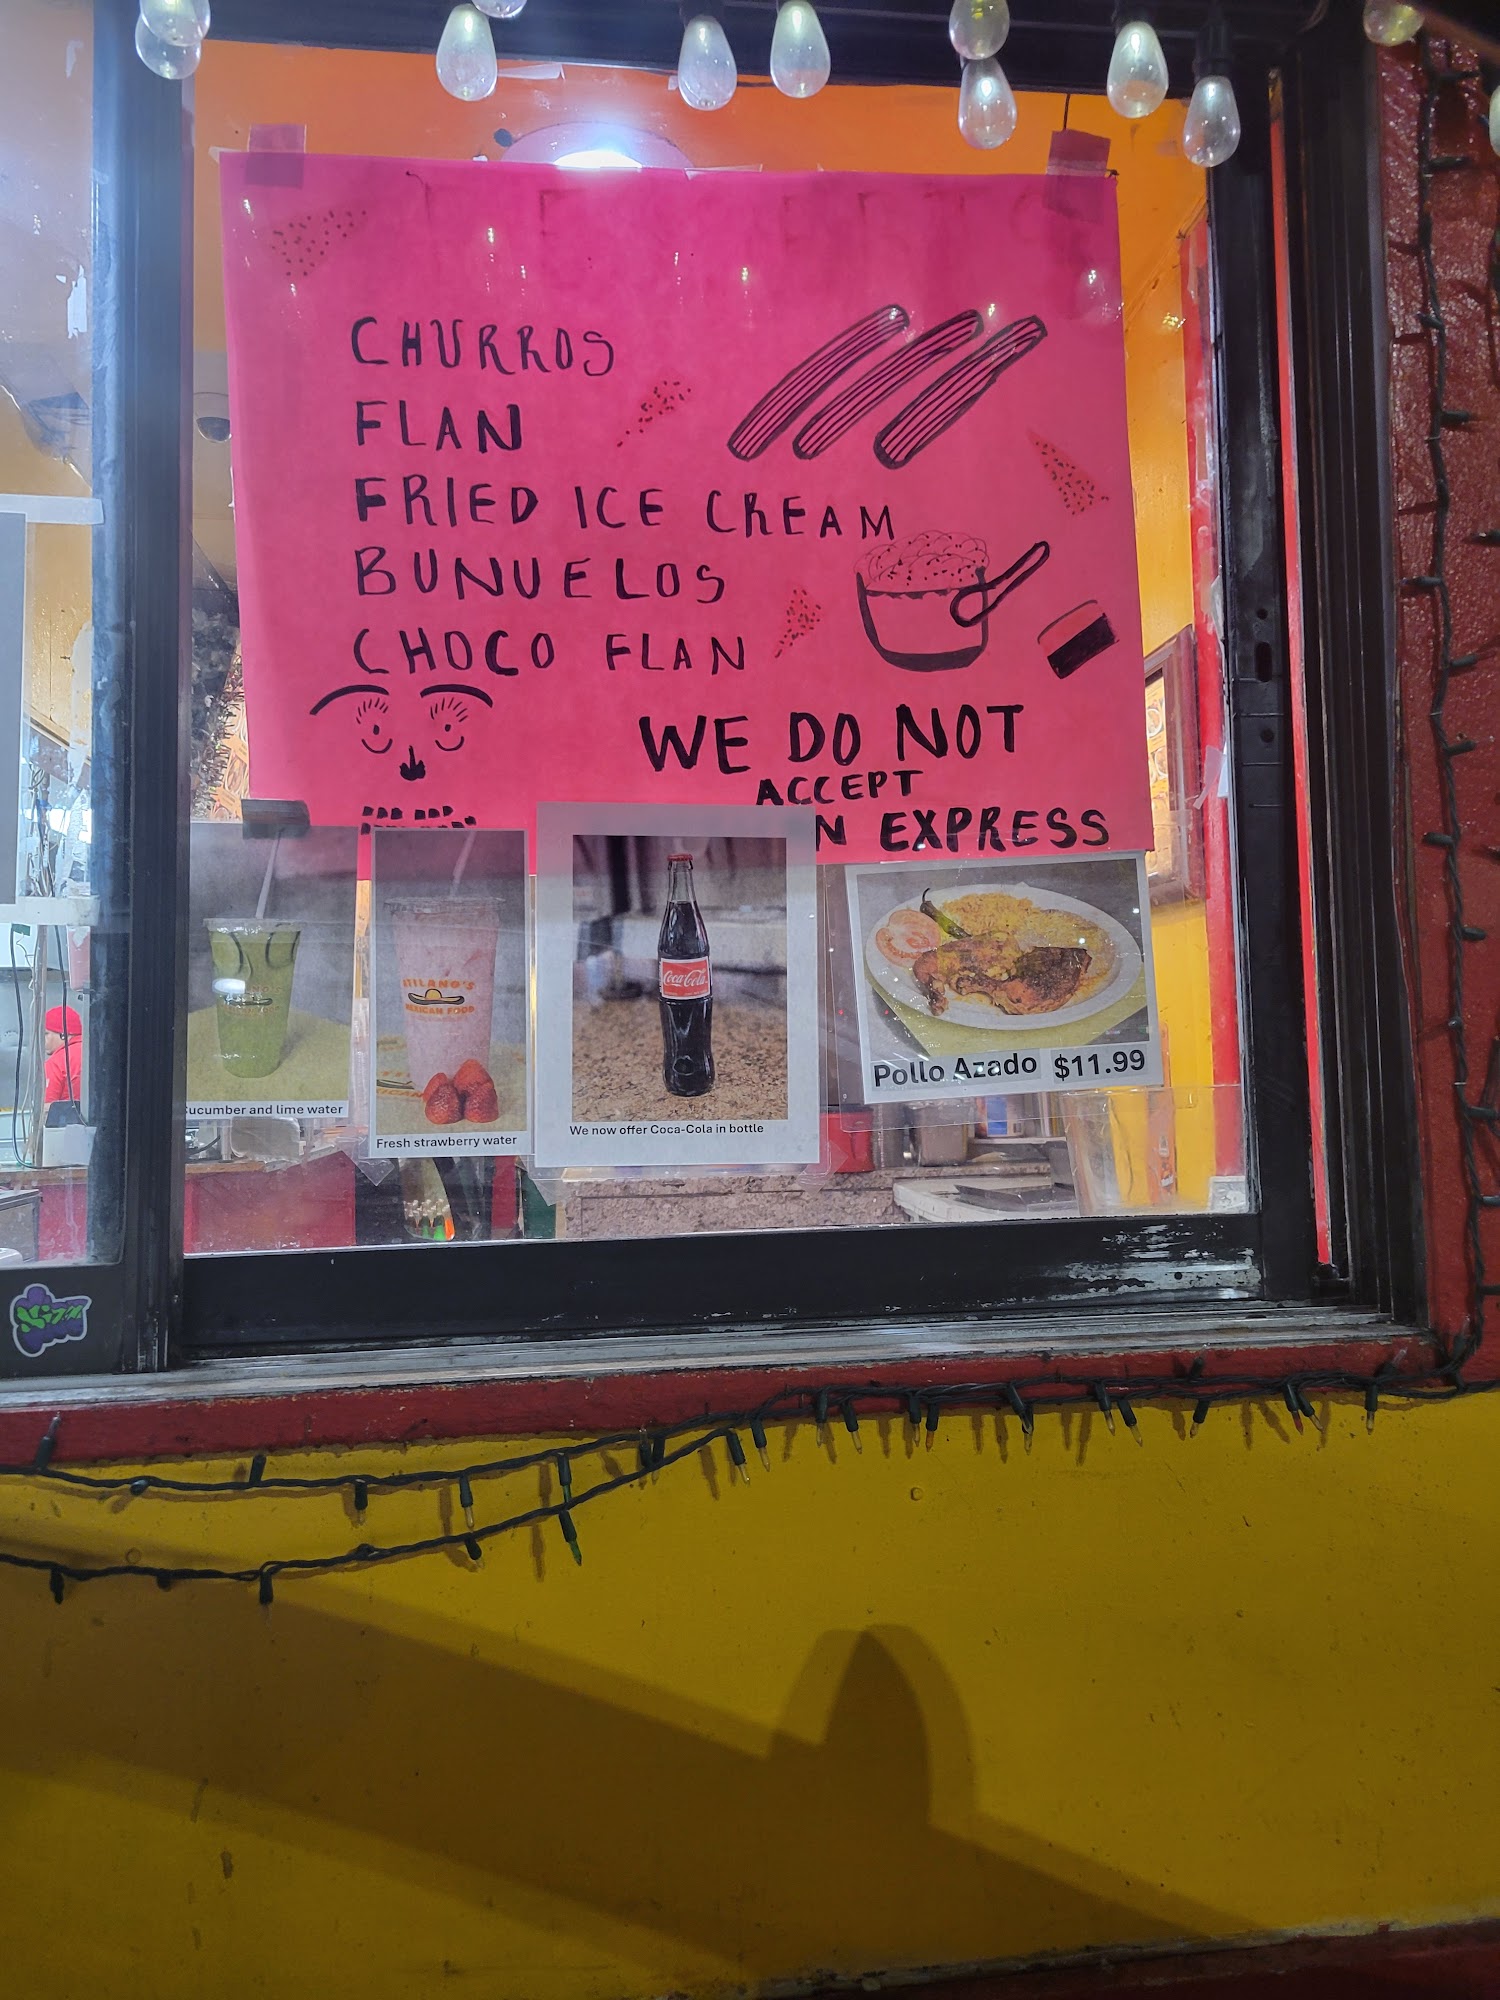 CHURROS
FLAN
FRIED ICE CREAM
BUNUELOS
CHOCO FLAN
WE DO NOT
ACCEPT
N EXPRESS
ucumber and lime water
ITILANO'S
EXICAN FOOD
Fresh strawberry water
Coca-Cola
We now offer Coca-Cola in bottle
Pollo Azado $11.99